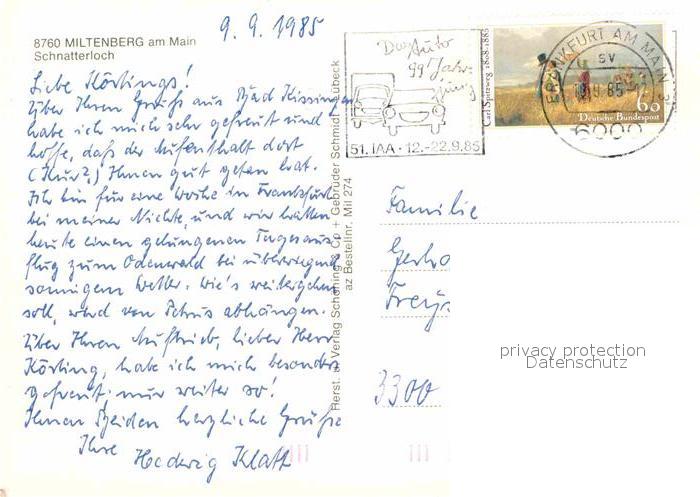 9.9.1985
8760 MILTENBERG am Main
Schnatterloch
Liebe Körtings!
Über Ihren Gruß aus Bad Kissingen
habe ich mich sehr gefreut und
hoffe, daß der Aufenthalt dort
(Kur?) Ihnen gut getan hat.
Ich bin für eine Woche in Frankfurt
bei meiner Nichte, und wir hatten
heute einen gelungenen Tagesaus-
flug zum Odenwald bei überwiegend
sonnigem Wetter. Wie's weitergehen
soll, wird von Petrus abhängen.
Über Ihren Auftrieb, lieber Herr
Körting, habe ich mich besonders
gefreut; nur weiter so!
Ihnen Beiden herzliche Grüße
Ihre
Hedwig Klatt
Herst. u. Verlag Schöning & Co + Gebrüder Schmidt Lübeck
az Bestellnr. Mil 274
Das Auto
99 Jahr-
51. IAA · 12.-22.9.85
Carl Spitzweg 1808-1885
60
Deutsche Bundespost
FRANKFURT AM MAIN
sv
9.85
6000
Familie
Gerho
Freys
3300
privacy protection
Datenschutz